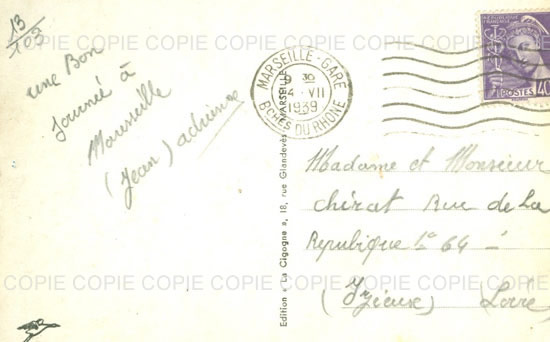 13/103
une Bon
Journée à
Marseille
(Jean) adrienne
MARSEILLE-GARE
9 30
4 - VII
1939
BCHES DU RHONE
POSTES 40
Edition « La Cigogne », 18, rue Glandevès, MARSEILLE
Madame et Monsieur
chirat Rue de La
Republique La 64
(Izieux) Loire
COPIE COPIE COPIE COPIE COPIE COPIE COPIE
COPIE COPIE COPIE COPIE COPIE COPIE COPIE COPIE
COPIE COPIE COPIE COPIE COPIE COPIE COPIE COPIE